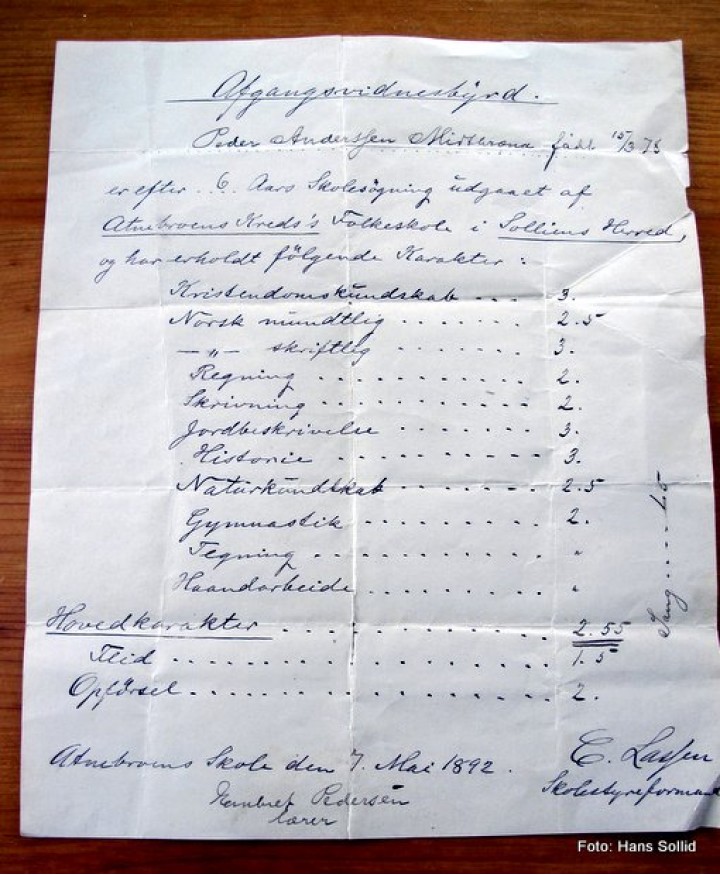 Afgangsvidnesbyrd.
Peder Anderssen født 15/3 78
er efter 6 Aars Skolesøgning udgaaet af
Atnebroens Kreds's Folkeskole i Solliens Herred,
og har erholdt følgende Karakter:
Kristendomskundskab - - - 3.
Norsk mundtlig . . . . . . . 2.5
— „ — skriftlig . . . . . . . 3.
Regning . . . . . . . . . . . 2.
Skrivning . . . . . . . . . . 2.
Jordbeskrivelse . . . . . . . 3.
Historie . . . . . . . . . . 3.
Naturkundskab . . . . . . . 2.5
Gymnastik . . . . . . . . . 2.
Tegning . . . . . . . . . . . "
Haandarbeide . . . . . . . . "
Sang
Hovedkarakter . . . . . . . . 2.55
Flid . . . . . . . . . . . . 1.5
Opførsel . . . . . . . . . . 2.
Atnebroens Skole den 7. Mai 1892.
C. Lassen
Skolestyreformand
Embret Pedersen
lærer
Foto: Hans Sollid